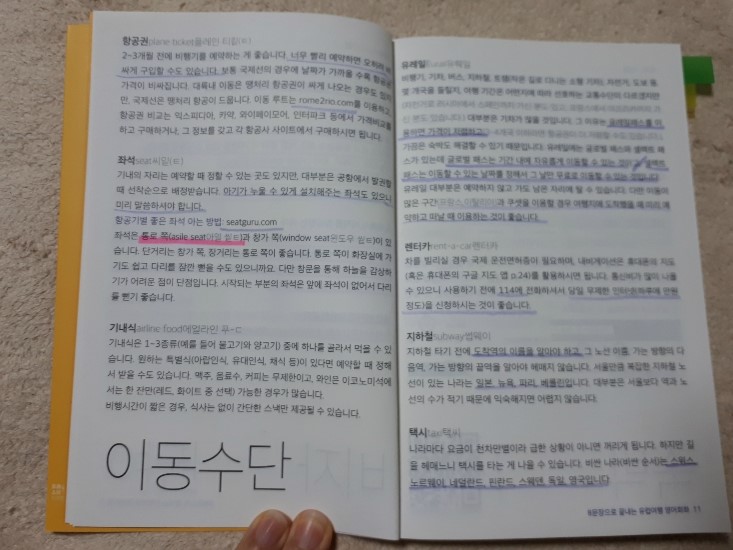 항공권plane ticket플레인 티킽(ㅌ)
2~3개월 전에 비행기를 예약하는 게 좋습니다. 너무 빨리 예약하면 오히려 비
싸게 구입할 수도 있습니다. 보통 국제선의 경우에 날짜가 가까울 수록 항공권
가격이 비싸집니다. 대륙내 이동은 땡처리 항공권이 싸게 나오는 경우도 있지
만, 국제선은 땡처리 항공이 드뭅니다. 이동 루트는 rome2rio.com를 이용하고,
항공권 비교는 익스피디아, 카약, 와이페이모어, 인터파크 등에서 가격비교를
하고 구매하거나, 그 정보를 갖고 각 항공사 사이트에서 구매하시면 됩니다.
좌석seat씨잍(ㅌ)
기내의 자리는 예약할 때 정할 수 있는 곳도 있지만, 대부분은 공항에서 발권할
때 선착순으로 배정받습니다. 아기가 누울 수 있게 설치해주는 좌석도 있으니
미리 말씀하셔야 합니다.
항공기별 좋은 좌석 아는 방법: seatguru.com
좌석은 통로 쪽(asile seat아일 씥ㅌ)과 창가 쪽(window seat윈도우 씥ㅌ)이 있
습니다. 단거리는 창가 쪽, 장거리는 통로 쪽이 좋습니다. 통로 쪽이 화장실에 가
기도 쉽고 다리를 잠깐 뻗을 수도 있으니까요. 다만 창문을 통해 하늘을 감상하
기가 어려운 점이 단점입니다. 시작되는 부분의 좌석은 앞에 좌석이 없어서 다리
를 뻗기 좋습니다.
기내식airline food에얼라인 푸-ㄷ
기내식은 1~3종류(예를 들어 불고기와 양고기) 중에 하나를 골라서 먹을 수 있
습니다. 원하는 특별식(아랍인식, 유대인식, 채식 등)이 있다면 예약할 때 정해
서 받을 수도 있습니다. 맥주, 음료수, 커피는 무제한이고, 와인은 이코노미석에
서는 한 잔만(레드, 화이트 중 선택) 가능한 경우가 많습니다.
비행시간이 짧은 경우, 식사는 없이 간단한 스낵만 제공될 수 있습니다.
이동수단
유레일Eurail유레일
비행기, 기차, 버스, 지하철, 트램(작은 길로 다니는 소형 기차), 자전거, 도보 등,
몇 개국을 돌릴지, 여행 기간은 어떤지에 따라 선호하는 교통수단이 다르겠지만
대부분은 기차가 많을 것입니다. 그 이유는 유레일패스를 이
용하면 가격이 저렴하고
가끔은 숙박도 해결할 수 있기 때문입니다. 유레일에는 글로벌 패스와 셀렉트 패
스가 있는데 글로벌 패스는 기간 내에 자유롭게 이동할 수 있는 것이고 셀렉트
패스는 이동할 수 있는 날짜를 정해서 그 날만 무료로 이동할 수 있는 것입니다.
유레일 대부분은 예약하지 않고 가도 남은 자리에 탈 수 있습니다. 다만 이용이
많은 구간(유럽스,이탈리아)과 쿠셋을 이용할 경우 여행지에 도착했을 때 미리 예
약하고 떠날 때 이용하는 것이 좋습니다.
렌터카rent-a-car렌터카
차를 빌리실 경우 국제 운전면허증이 필요하며, 내비게이션은 휴대폰의 지도
(혹은 휴대폰의 구글 지도 앱 p.24)를 활용하시면 됩니다. 통신비가 많이 나올
수 있으니 사용하기 전에 114에 전화하셔서 당일 무제한 인터넷(하루에 만원
정도)을 신청하시는 것이 좋습니다.
지하철subway썹웨이
지하철 타기 전에 도착역의 이름을 알아야 하고, 그 노선 이름, 가는 방향의 다
음역, 가는 방향의 끝역을 알아야 헤매지 않습니다. 서울만큼 복잡한 지하철 노
선이 있는 나라는 일본, 뉴욕, 파리, 베를린입니다. 대부분은 서울보다 역과 노
선의 수가 적기 때문에 익숙해지면 어렵지 않습니다.
택시taxi택씨
나라마다 요금이 천차만별이라 급한 상황이 아니면 꺼리게 됩니다. 하지만 길
을 헤매느니 택시를 타는 게 나을 수 있습니다. 비싼 나라(비싼 순서)는 스위스,
노르웨이, 네덜란드, 핀란드, 스웨덴, 독일, 영국입니다.
6문장으로 끝내는 유럽여행 영어회화 11